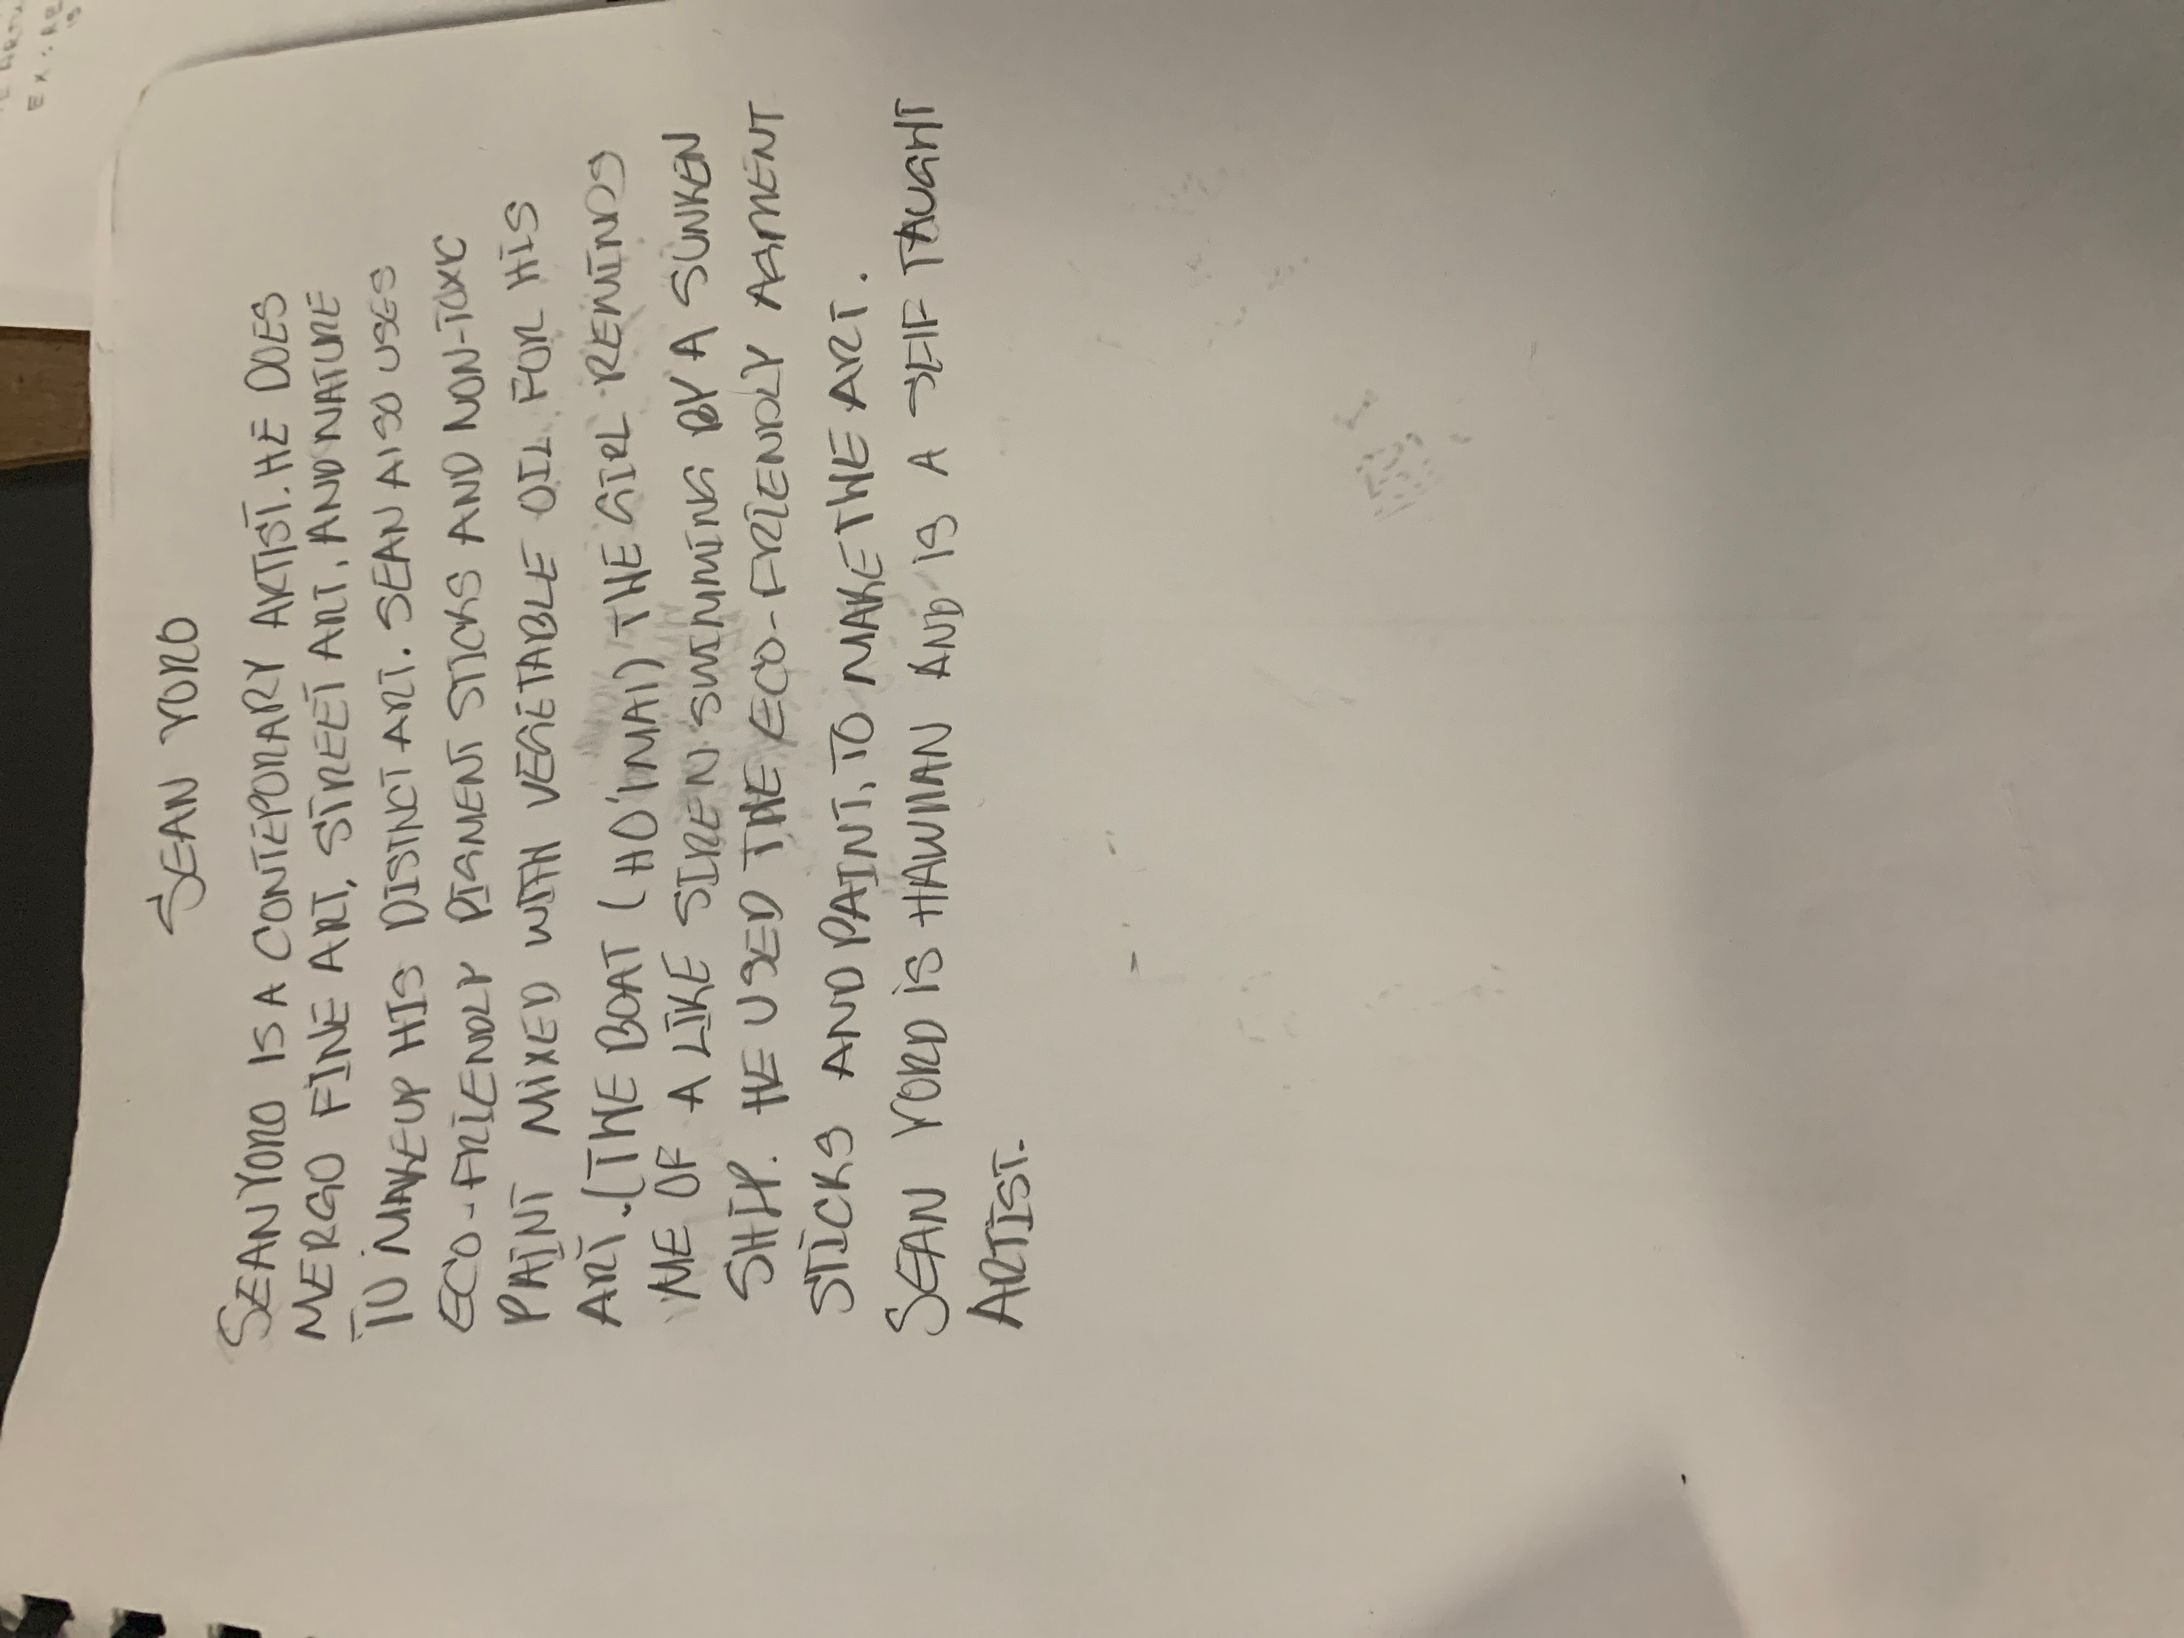 SEAN YORO
SEAN YORO IS A CONTEPORARY ARTIST. HE DOES
MERGO FINE ART, STREET ART, AND NATURE
TO MAKEUP HIS DISTINCT ART. SEAN ALSO USES
ECO-FRIENDLY PIGMENT STICKS AND NON-TOXIC
PAINT MIXED WITH VEGETABLE OIL FOR HIS
ART. (THE BOAT (HO'I MAI) THE GIRL REMINDS
ME OF A LIKE SIREN SWIMMING BY A SUNKEN
SHIP. HE USED THE ECO-FRIENDLY AGMENT
STICKS AND PAINT, TO MAKE THE ART.
SEAN YORO IS HAWIIAN AND IS A SELF TAUGHT
ARTIST.
EX: